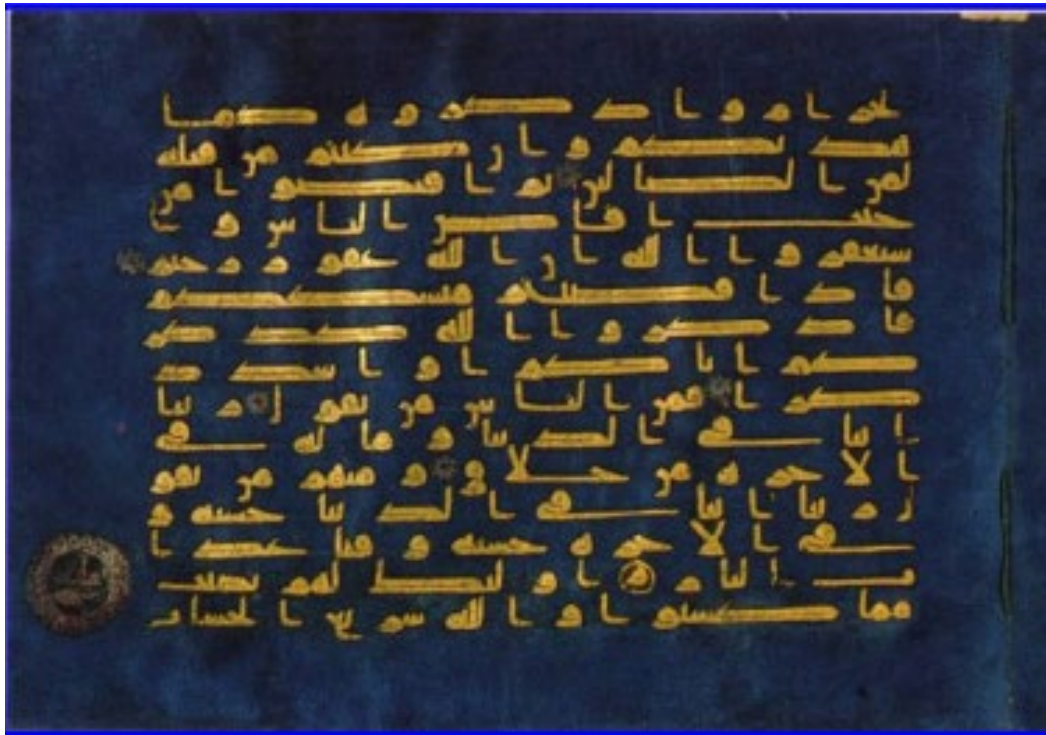 لحرام واذكروه كما
هديكم وان كنتم من قبله
لمن الضالين ثم افيضوا من
حيث افاض الناس وا
ستغفروا الله ان الله غفور رحيم
فاذا قضيتم منسككم
فاذكروا الله كذكر
كم اباكم او اشد ذ
كرا فمن الناس من يقول ربنا
اتنا في الدنيا وما له في
الاخرة من خلاق ومنهم من يقو
ل ربنا اتنا في الدنيا حسنة و
في الاخرة حسنة وقنا عذاب ا
لنار اولئك لهم نصيب
مما كسبوا والله سريع الحساب